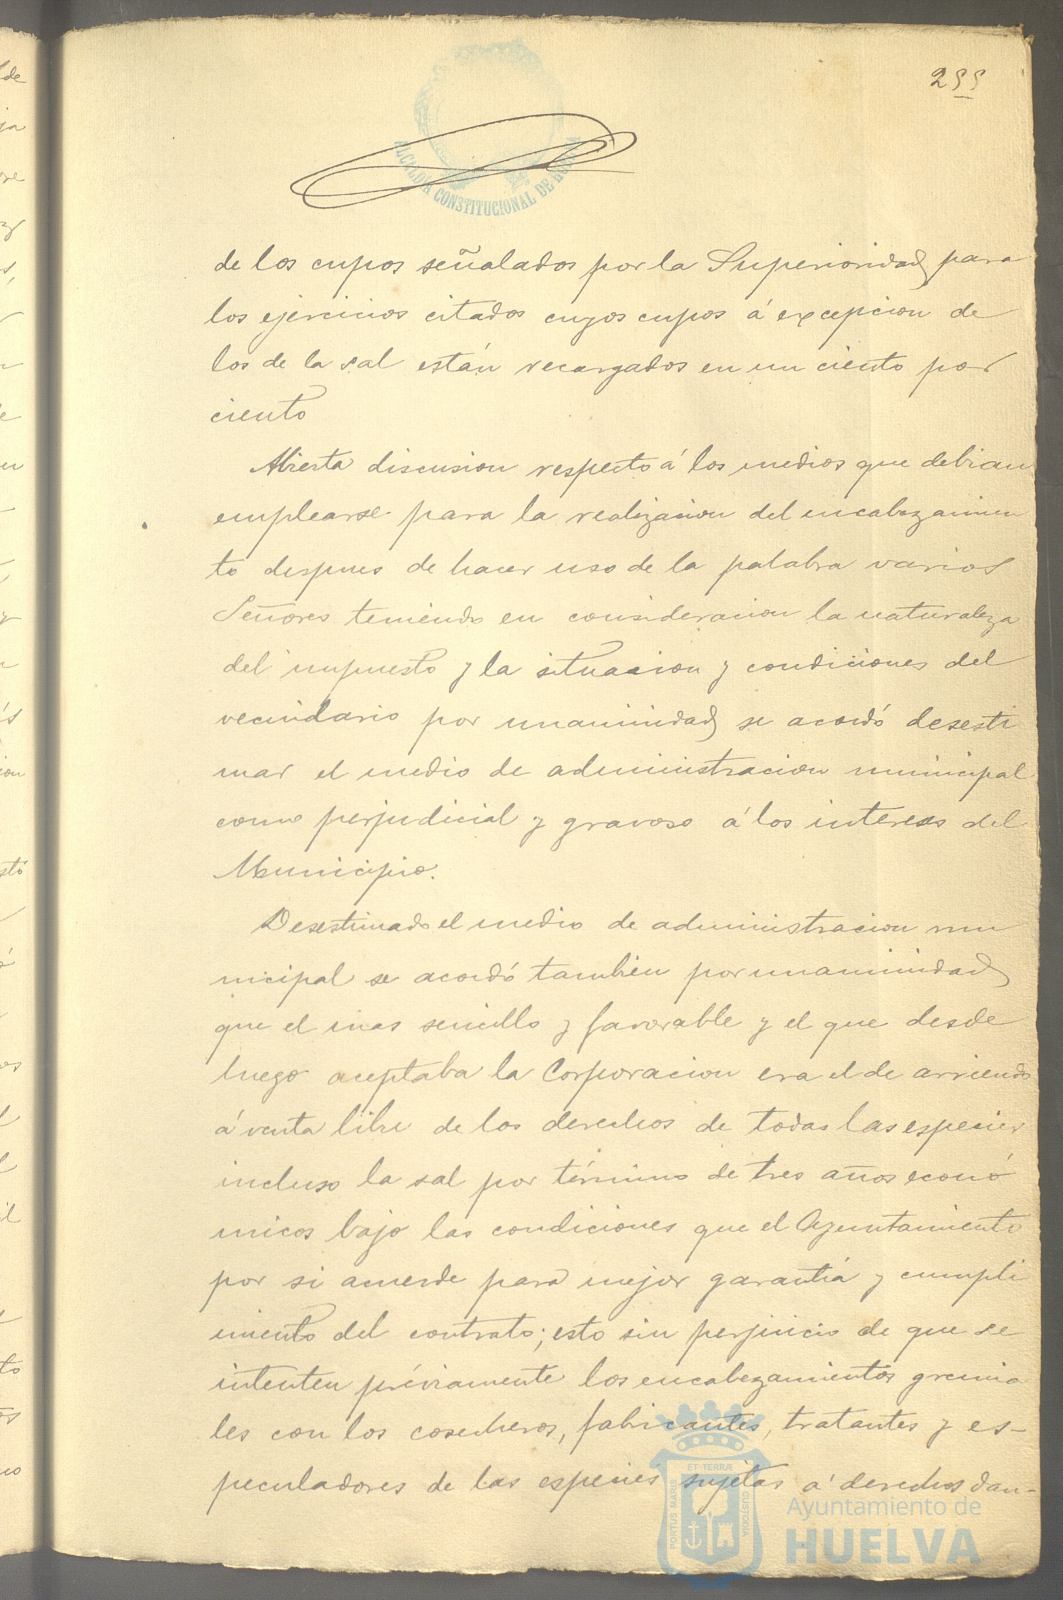 255
ALCALDIA CONSTITUCIONAL DE HUELVA
de los cupos señalados por la Superioridad para
los ejercicios citados cuyos cupos á excepcion de
los de la sal están recargados en un ciento por
ciento
Abierta discusion respecto á los medios que debian
emplearse para la realizacion del encabezamien
to despues de hacer uso de la palabra varios
Señores teniendo en consideracion la naturaleza
del impuesto y la situacion y condiciones del
vecindario por unanimidad se acordó desesti
mar el medio de administracion municipal
como perjudicial y gravoso á los intereses del
Municipio.
Desestimado el medio de administracion mu
nicipal se acordó tambien por unanimidad
que el mas sencillo y favorable y el que desde
luego aceptaba la Corporacion era el de arriendo
á venta libre de los derechos de todas las especies
incluso la sal por término de tres años econó
micos bajo las condiciones que el Ayuntamiento
por si acuerde para mejor garantia y cumpli
miento del contrato; esto sin perjuicio de que se
intenten préviamente los encabezamientos gremia
les con los cosecheros, fabricantes, tratantes y es-
peculadores de las especies sujetas á derechos dan-
PORTUS MARIS ET TERRÆ CUSTODIA
Ayuntamiento de
HUELVA